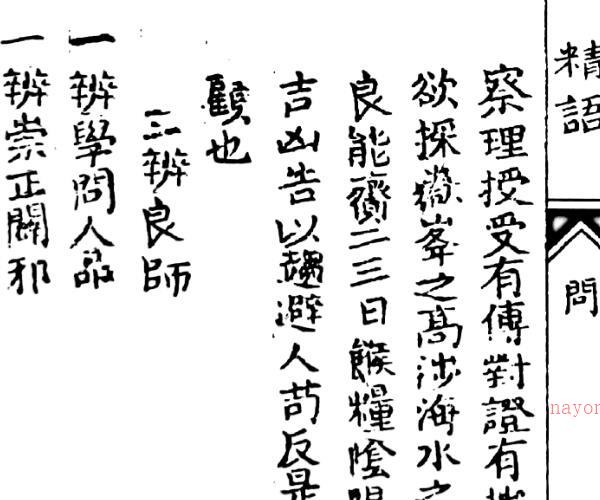 精語
問
察理授受有傳對證有
欲探嶽峯之高涉海水之
良能賷二三日餱糧陰陽
吉凶告以趨避人苟反是
顧也
三辨良師
一辨學問人品
一辨崇正闢邪
nayon